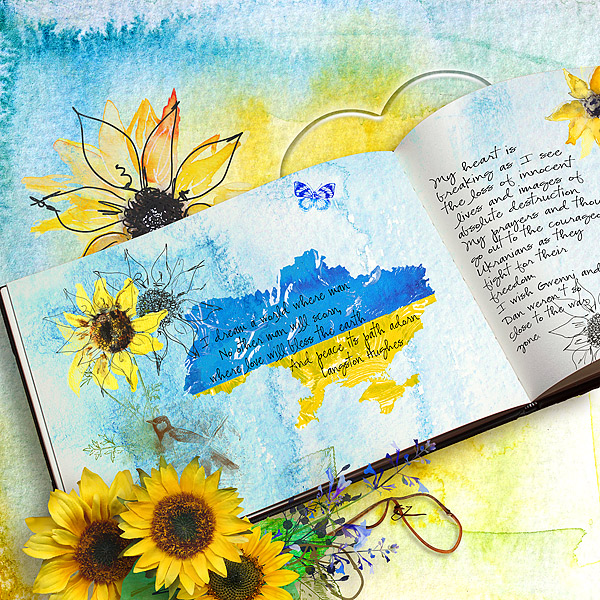 I dream a world where man
No other man will scorn,
where love will bless the earth
And peace its path adorn
Langston Hughes
My heart is
breaking as I see
the loss of innocent
lives and images of
absolute destruction
My prayers and thou
go out to the courageou
Ukranians as they
fight for their
freedom
I wish Gwenni and
Dan weren't so
close to the war
zone